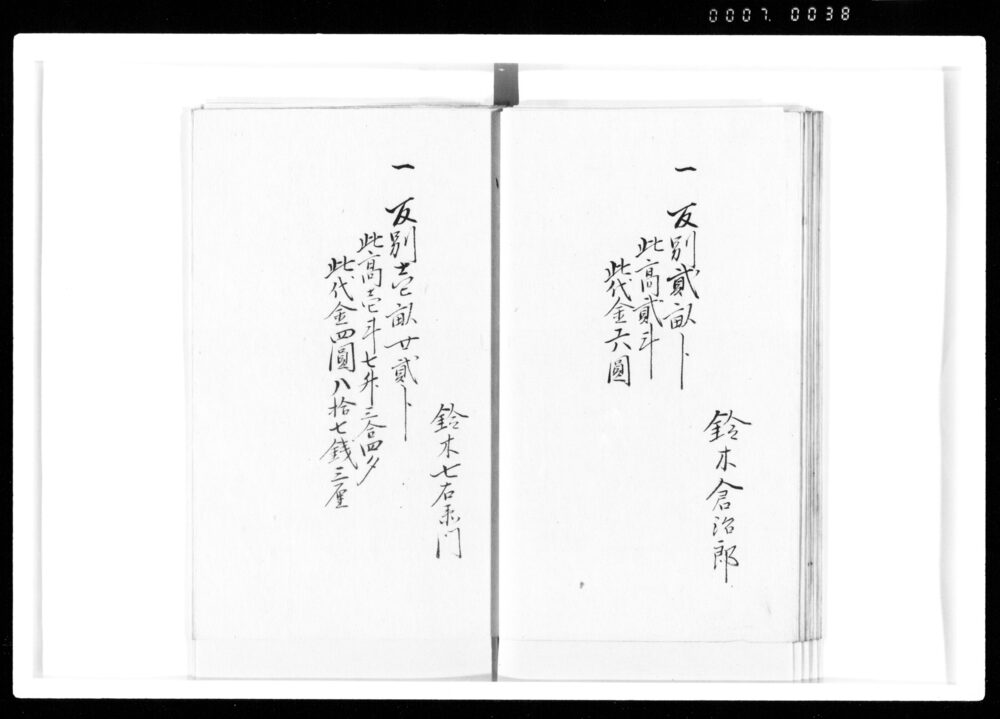 0007. 0038
鈴木倉治郎
一 反別貳畝卜
此高貳斗
此代金六圓
鈴木七右衛門
一 反別壱畝廿貳卜
此高壱斗七升三合四夕
此代金四圓八拾七銭三厘